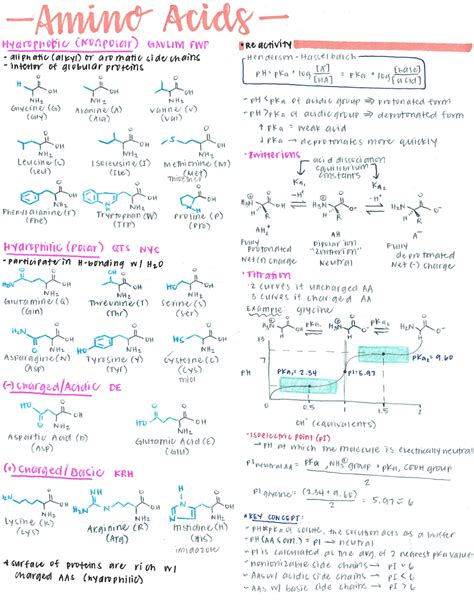 Amino Acids
Hydrophobic (Nonpolar) GAVLIM FWP
- aliphatic (alkyl) or aromatic side chains
- interior of globular proteins
Glycine (G)
(Gly)
Alanine (A)
(Ala)
Valine (V)
(Val)
Leucine (L)
(Leu)
Isoleucine (I)
(Ile)
Methionine (M)
(Met)
Phenylalanine (F)
(Phe)
Tryptophan (W)
(Trp)
Proline (P)
(Pro)
Hydrophilic (Polar) QTS NYC
- participate in H-bonding w/ H2O
Glutamine (Q)
(Gln)
Threonine (T)
(Thr)
Serine (S)
(Ser)
Asparagine (N)
(Asp)
Tyrosine (Y)
(Tyr)
Cysteine (C)
(Cys)
thiol
(-) Charged/Acidic DE
Aspartic Acid (D)
(Asp)
Glutamic Acid (E)
(Glu)
(+) Charged/Basic KRH
Lysine (K)
(Lys)
Arginine (R)
(Arg)
Histidine (H)
(His)
imidazole
* surface of proteins are rich w/
charged AAs (hydrophilic)
• Reactivity
- Henderson-Hasselbalch
pH = pKa + log [A⁻]/[HA] = pKa + log [base]/[acid]
- pH < pKa of acidic group ⇒ protonated form
- pH > pKa of acidic group ⇒ deprotonated form
↑ pKa = weak acid
↓ pKa → deprotonates more quickly
• Zwitterions
acid dissociation
equilibrium
constants
Ka1
Ka2
-H⁺
-H⁺
Fully
protonated
Net (+) charge
Dipolar ion
"zwitterion"
Neutral
Fully
deprotonated
Net (-) charge
• Titration
- 2 curves if uncharged AA
- 3 curves if charged AA
Example: glycine
pKa1
pKa2
pH
13
7
pKa1 = 2.34
pI = 5.97
pKa2 = 9.60
0.5
1
1.5
2
OH⁻ (equivalents)
• Isoelectric point (pI)
→ pH at which the molecule is electrically neutral
pI neutral AA = pKa, NH3⁺ group + pKa, COOH group
2
pI glycine = (2.34 + 9.60)/2 = 5.97 ≈ 6
* KEY CONCEPT:
- pH ≈ pKa of solute, the solution acts as a buffer
- pH (AA soln.) = pI → neutral
- pI is calculated as the avg. of 2 nearest pKa values
- nonionizable side chains → pI ~ 6
- AAs w/ acidic side chains → pI < 6
- AAs w/ basic side chains → pI > 6